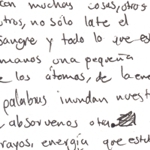 can muchas cosas, otros
tros, no sólo late el
sangre y todo lo que es
manos una pequeña
e los átomos, de la ene
palabras inundan nuest
absorvenos otra
rayos, energía que est